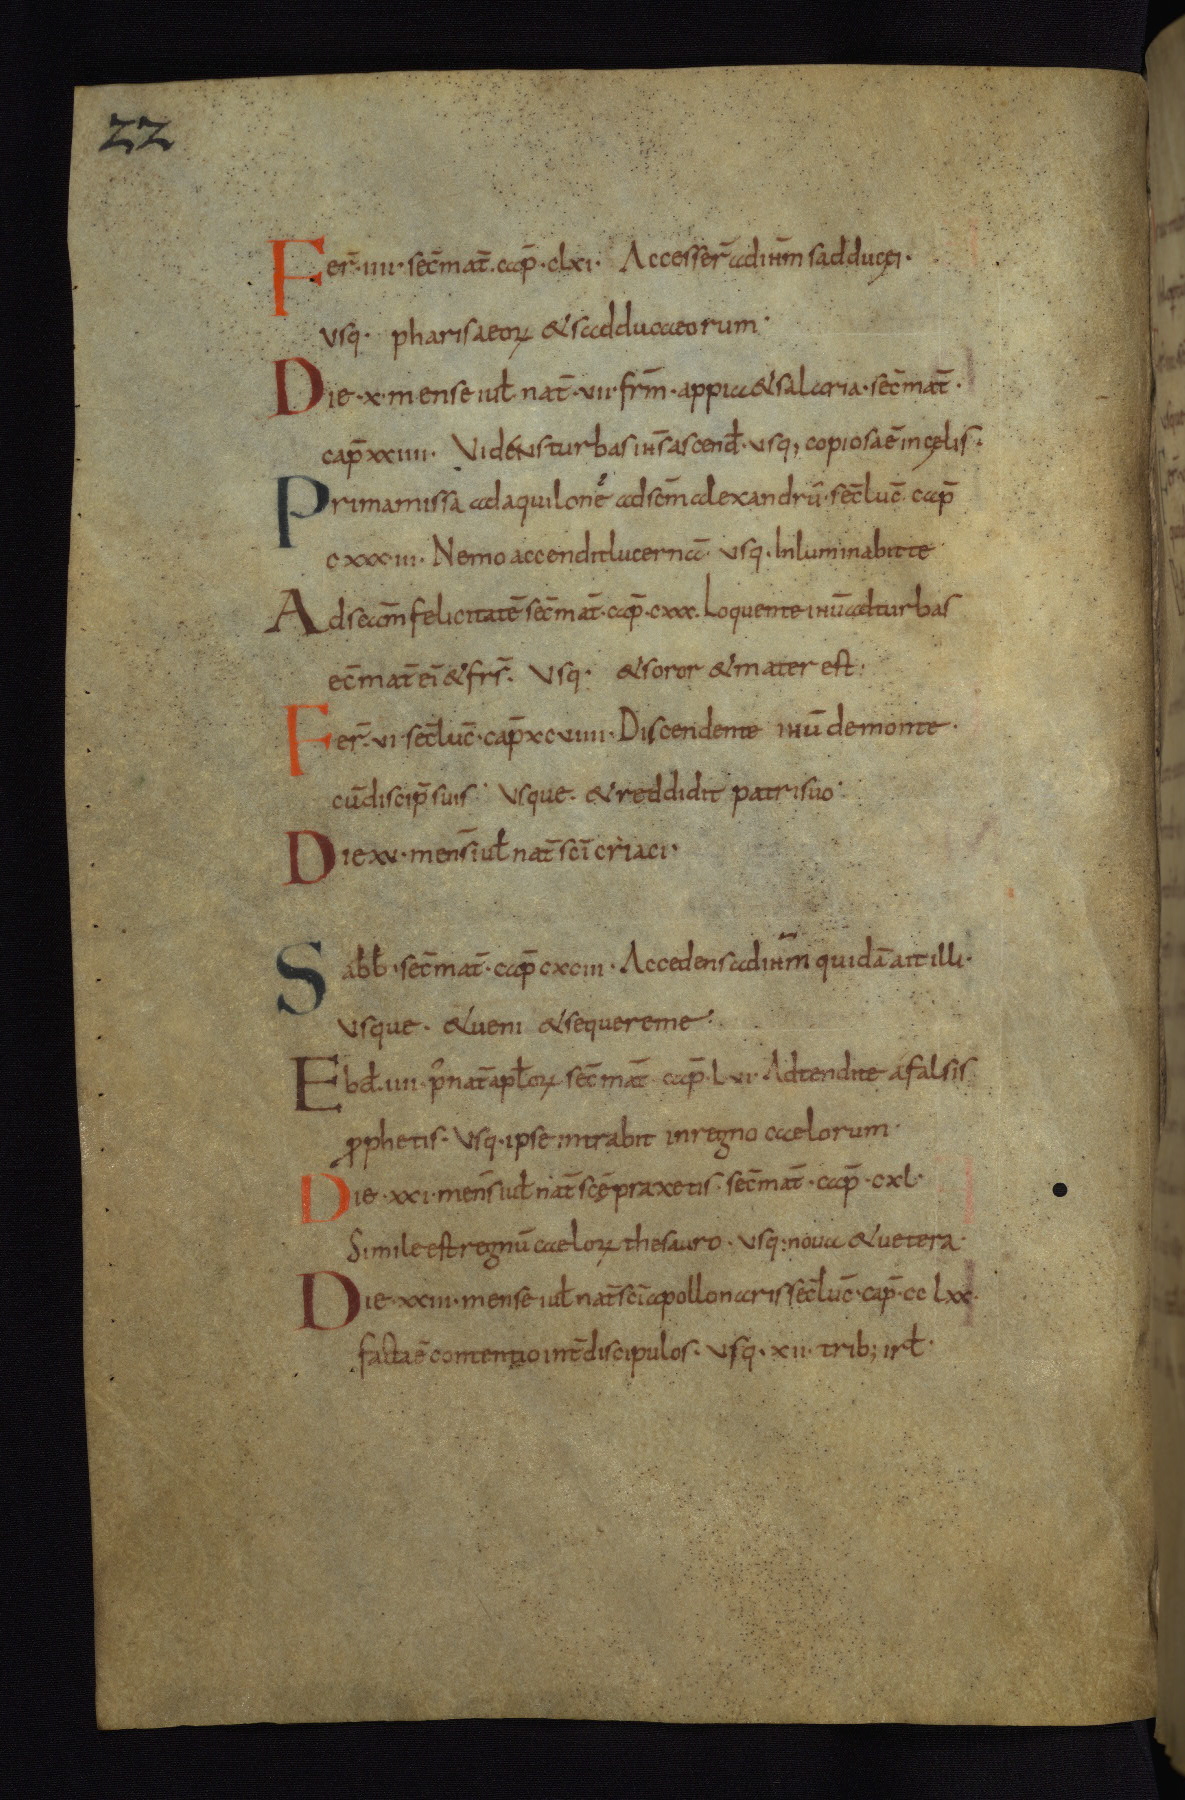 22
Fer̄·iiii·sec̄mat̄·cap̄·clxi· Accesser̄adiħm̄ sadducęi·
vsq· pharisaeoꝝ &sadducaeorum·
Die·x·mense iuł nat̄·vii·frm̄·appia&salaria·sec̄mat̄·
cap̄xxiiii· Vidensturbasiħs̄ascenđ·vsq; copiosaē incęlis·
Primamissa adaquilonē adsc̄m alexandrū·sec̄luc̄ cap̄
cxxxiii· Nemoaccenditlucernā· vsq·Inluminabitte
Adsc̄am̄felicitatē sec̄mat̄·cap̄·cxxx·Loquenteiħūadturbas
ec̄mat̄ei̅&frs̄· Vsq· &soror &mater est·
Fer̄·vi·sec̄luc̄·cap̄xcviiii·Discendente iħū demonte·
cūdiscip̄suis· Vsque·&reddidit patrisuo·
Diexv·mens̄iuł nat̄sc̄i cyriaci·
Sabb̄·sec̄mat̄·cap̄cxciii·Accedensadiħm̄ quidā aitilli·
Vsque·&veni &sequereme·
Ebđ·iiii·p̄nat̄aposłoꝝ sec̄mat̄ cap̄·lvi·Adtendite afalsis
ꝓphetis·Vsq·ipse intrabit inregno caelorum·
Die·xxi·mens̄iuł nat̄scę̄praxetis·sec̄mat̄·cap̄·cxl·
Simileestregnūcaeloꝝ thesauro·vsq·nova &vetera·
Die·xxiii·mense iuł nat̄sc̄iapollonarissec̄luc̄·cap̄·cclxx·
factaē contentiointdiscipulos·vsq·xii·trib; isrł·